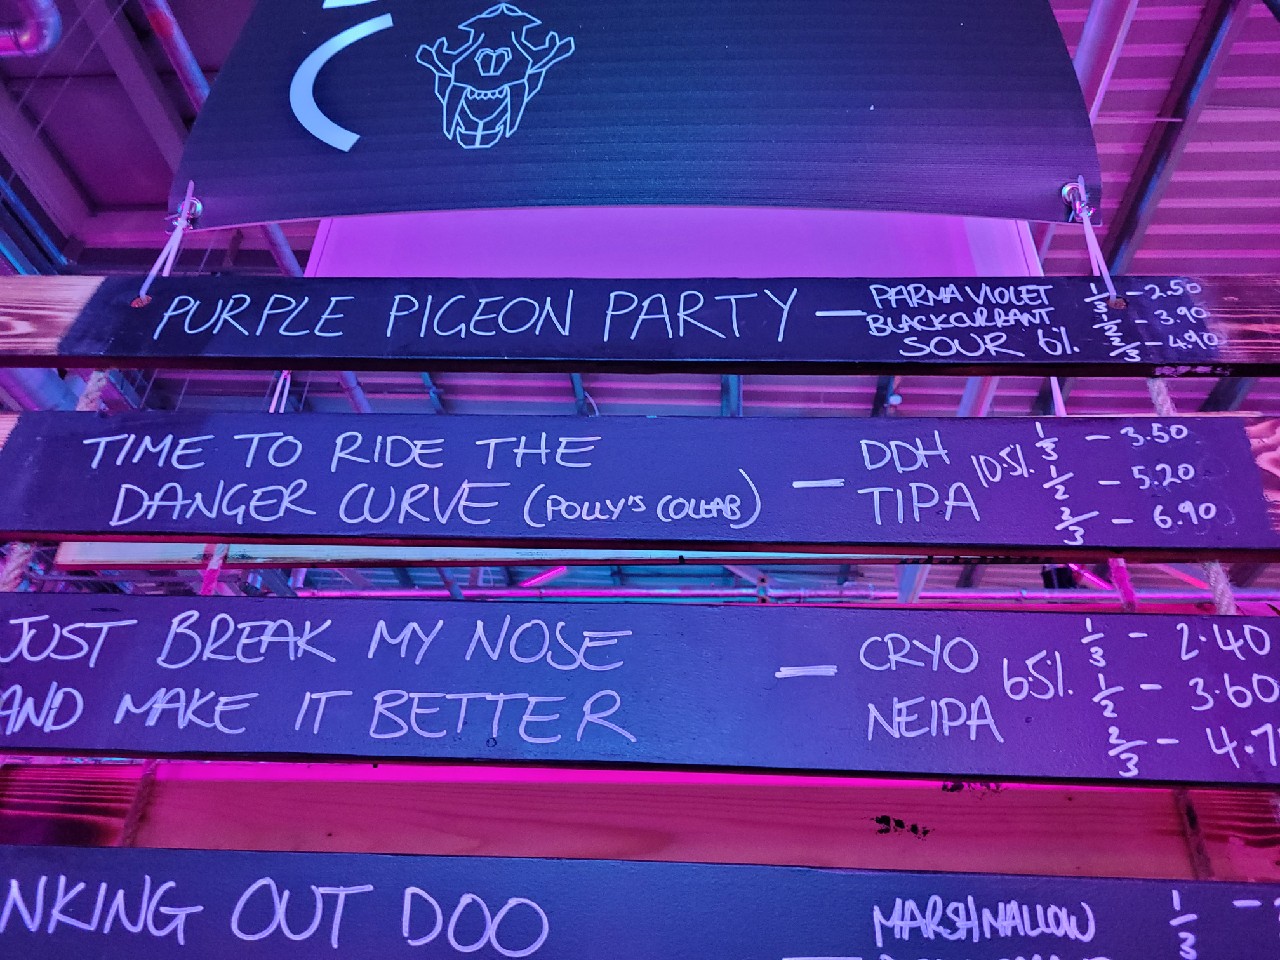 PURPLE PIGEON PARTY — PARMA VIOLET 1/3 - 2.50
BLACKCURRANT 1/2 - 3.90
SOUR 6%. 2/3 - 4.90
TIME TO RIDE THE — DDH 10.5%. 1/3 - 3.50
DANGER CURVE (POLLY'S COLLAB) TIPA 1/2 - 5.20
2/3 - 6.90
JUST BREAK MY NOSE — CRYO 6.5%. 1/3 - 2.40
AND MAKE IT BETTER NEIPA 1/2 - 3.60
2/3 - 4.7
NKING OUT DOO — MARSHMALLOW 1/3 -